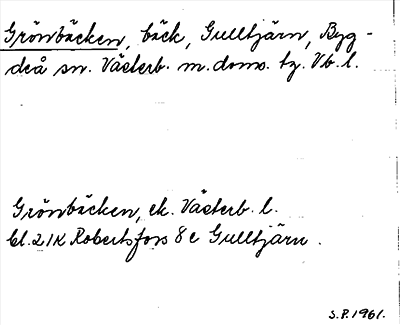 Grönbäcken, bäck, Gulltjärn, Byg-
deå sn. Västerb. m. doms. tg. Vb. l.
Grönbäcken, ek. Västerb. l.
Bl. 21K Robertsfors 8e Gulltjärn.
S.P. 1961.